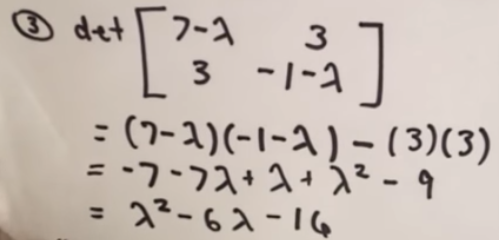 ③ det [7-λ 3
3 -1-λ]
= (7-λ)(-1-λ) - (3)(3)
= -7-7λ+λ+λ² - 9
= λ²-6λ-16